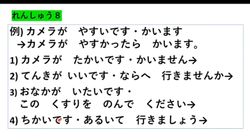 れんしゅう８
例) カメラが　やすいです・かいます
→カメラが　やすかったら　かいます。
1) カメラが　たかいです・かいません→
2) てんきが いいです・ならへ　行きませんか→
3) おなかが　いたいです・
この　くすりを　のんで　ください→
4) ちかいです・あるいて　行きましょう→